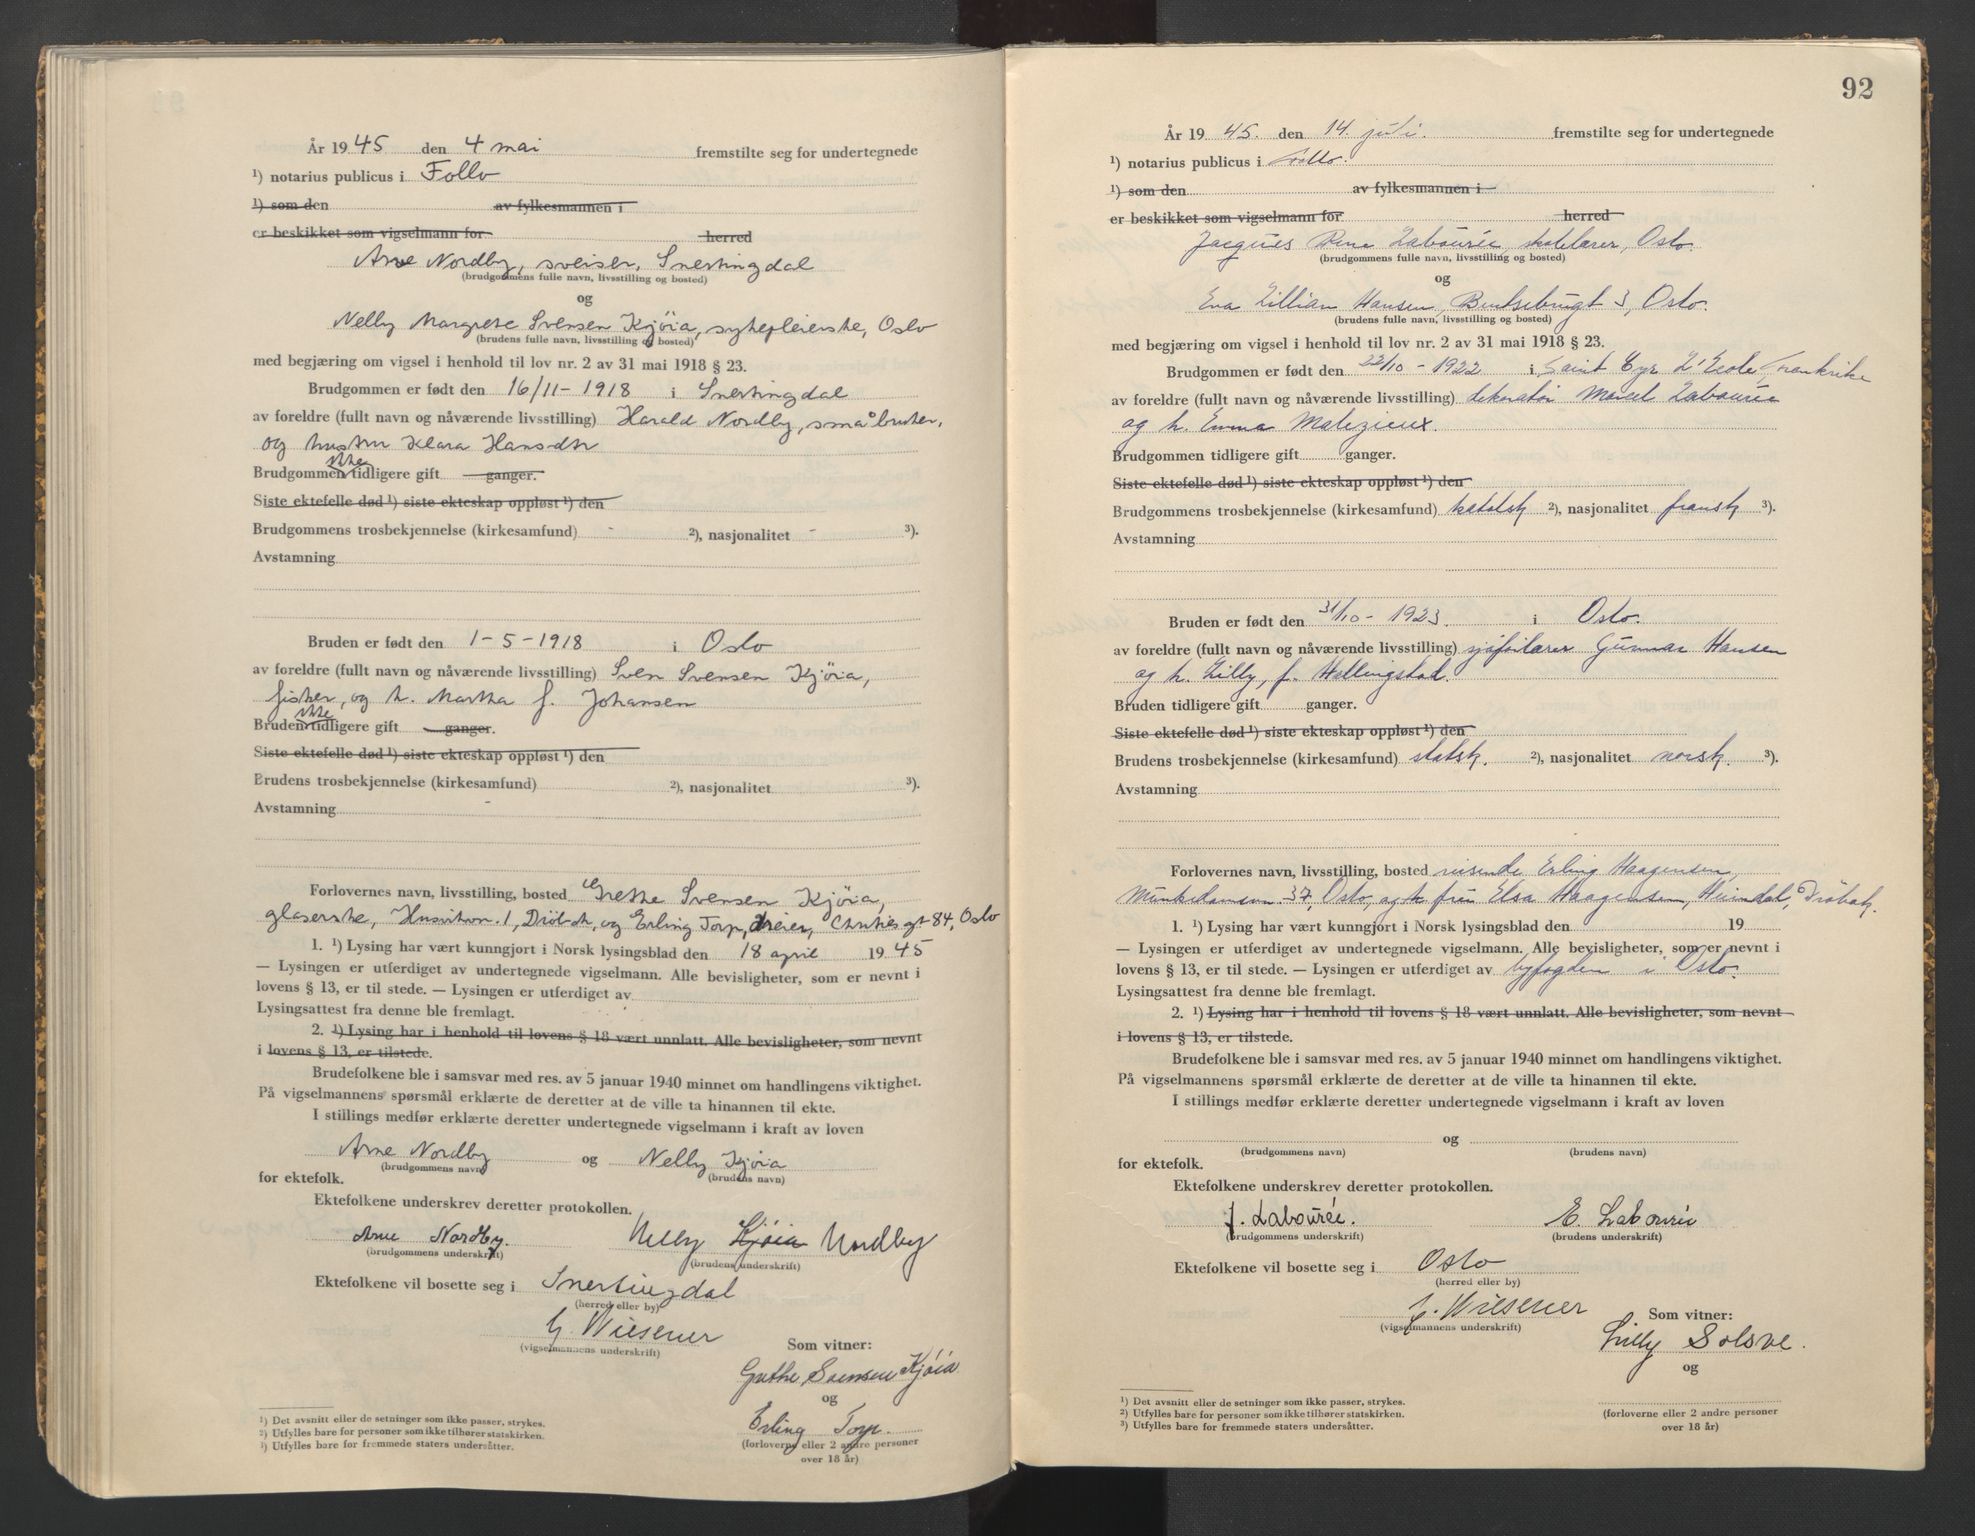 År 1945 den 4 mai fremstilte seg for undertegnede
¹) notarius publicus i Follo
¹) som den av fylkesmannen i
er beskikket som vigselmann for herred
Arne Nordby, sveiser, Snertingdal
(brudgommens fulle navn, livsstilling og bosted)
og
Nelly Margrete Svensen Kjöia, sykepleierske, Oslo
(brudens fulle navn, livsstilling og bosted)
med begjæring om vigsel i henhold til lov nr. 2 av 31 mai 1918 § 23.
Brudgommen er født den 16/11-1918 i Snertingdal
av foreldre (fullt navn og nåværende livsstilling) Harald Nordby, småbruker,
og hustru Klara Hansdtr
Brudgommen ikke tidligere gift ganger.
Siste ektefelle død ¹) siste ekteskap oppløst ¹) den
Brudgommens trosbekjennelse (kirkesamfund) - ²), nasjonalitet - ³).
Avstamning
Bruden er født den 1-5-1918 i Oslo
av foreldre (fullt navn og nåværende livsstilling) Sven Svensen Kjöia,
fisker, og h. Martha f. Johansen
Bruden ikke tidligere gift ganger.
Siste ektefelle død ¹) siste ekteskap oppløst ¹) den
Brudens trosbekjennelse (kirkesamfund) ²), nasjonalitet ³).
Avstamning -
Forlovernes navn, livsstilling, bosted Grethe Svensen Kjöia,
glaserske, Husvikvn. 1, Dröbak, og Erling Torp, dreier, Christies gt 84, Oslo
1. ¹) Lysing har vært kunngjort i Norsk lysingsblad den 18 april 1945
— Lysingen er utferdiget av undertegnede vigselmann. Alle bevisligheter, som er nevnt i
lovens § 13, er til stede. — Lysingen er utferdiget av
Lysingsattest fra denne ble fremlagt.
2. ¹) Lysing har i henhold til lovens § 18 vært unnlatt. Alle bevisligheter, som nevnt
i lovens § 13, er tilstede.
Brudefolkene ble i samsvar med res. av 5 januar 1940 minnet om handlingens viktighet.
På vigselmannens spørsmål erklærte de deretter at de ville ta hinannen til ekte.
I stillings medfør erklærte deretter undertegnede vigselmann i kraft av loven
Arne Nordby og Nelly Kjöia
(brudgommens navn) (brudens navn)
for ektefolk.
Ektefolkene underskrev deretter protokollen.
Arne Nordby. Nelly Kjöia Nordby
(brudgommens underskrift) (brudens underskrift)
Ektefolkene vil bosette seg i Snertingdal
(herred eller by)
G. Wiesener
(vigselmannens underskrift) Som vitner:
Grethe Svensen Kjöia
og
Erling Torp.
(forloverne eller 2 andre personer
over 18 år)
¹) Det avsnitt eller de setninger som ikke passer, strykes.
²) Utfylles bare for personer som ikke tilhører statskirken.
³) Utfylles bare for fremmede staters undersåtter.
92
År 1945. den 14. juli. fremstilte seg for undertegnede
¹) notarius publicus i Follo.
¹) som den av fylkesmannen i
er beskikket som vigselmann for herred
Jacques Labourée, Oslo.
(brudgommens fulle navn, livsstilling og bosted)
og
Eva Lillian Hansen, Bentsebrugt 3, Oslo.
(brudens fulle navn, livsstilling og bosted)
med begjæring om vigsel i henhold til lov nr. 2 av 31 mai 1918 § 23.
Brudgommen er født den 22/10 - 1922 i Saint Cyr L'Ecole, Frankrike
av foreldre (fullt navn og nåværende livsstilling) dekoratör Marcel Labourée
og h. Emma Malezieux.
Brudgommen tidligere gift ganger.
Siste ektefelle død ¹) siste ekteskap oppløst ¹) den
Brudgommens trosbekjennelse (kirkesamfund) katolsk ²), nasjonalitet fransk ³).
Avstamning
Bruden er født den 31/10 - 1923. i Oslo.
av foreldre (fullt navn og nåværende livsstilling) sjåførlærer Gunnar Hansen
og h. Lilly, f. Hellingstad.
Bruden tidligere gift ganger.
Siste ektefelle død ¹) siste ekteskap oppløst ¹) den
Brudens trosbekjennelse (kirkesamfund) statsk. ²), nasjonalitet norsk. ³).
Avstamning
Forlovernes navn, livsstilling, bosted reisende Erling Haagensen,
Munkedamsvn 37, Oslo, og fru Elsa Haagensen, Heimdal, Dröbak.
1. ¹) Lysing har vært kunngjort i Norsk lysingsblad den 19
— Lysingen er utferdiget av undertegnede vigselmann. Alle bevisligheter, som er nevnt i
lovens § 13, er til stede. — Lysingen er utferdiget av byfogden i Oslo.
Lysingsattest fra denne ble fremlagt.
2. ¹) Lysing har i henhold til lovens § 18 vært unnlatt. Alle bevisligheter, som nevnt
i lovens § 13, er tilstede.
Brudefolkene ble i samsvar med res. av 5 januar 1940 minnet om handlingens viktighet.
På vigselmannens spørsmål erklærte de deretter at de ville ta hinannen til ekte.
I stillings medfør erklærte deretter undertegnede vigselmann i kraft av loven
og
(brudgommens navn) (brudens navn)
for ektefolk.
Ektefolkene underskrev deretter protokollen.
J. Labourée. E. Labourée
(brudgommens underskrift) (brudens underskrift)
Ektefolkene vil bosette seg i Oslo
(herred eller by)
G. Wiesener
(vigselmannens underskrift) Som vitner:
Lilly Solsve.
og
(forloverne eller 2 andre personer
over 18 år)
¹) Det avsnitt eller de setninger som ikke passer, strykes.
²) Utfylles bare for personer som ikke tilhører statskirken.
³) Utfylles bare for fremmede staters undersåtter.